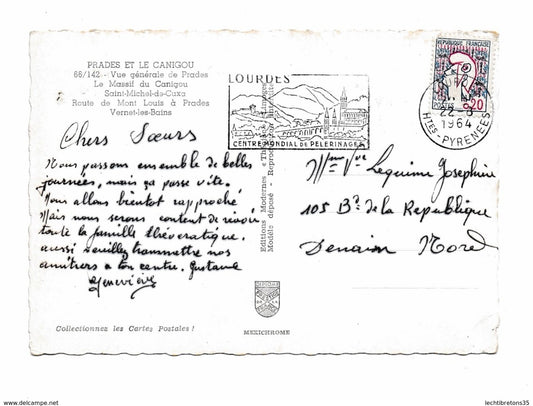 PRADES ET LE CANIGOU
66/142 - Vue générale de Prades
Le Massif du Canigou
Saint-Michel-de-Cuxa
Route de Mont Louis à Prades
Vernet-les-Bains
Chers Sœurs
Nous passons ensemble de belles
journées, mais ça passe vite.
Nous allons bientot rapproché
Mais nous serons content de revoir
toute la famille
aussi veuillez transmettre nos
amitiers a ton centre. Gustave
Geneviève
Collectionnez les Cartes Postales !
Editions Modernes
Modèle déposé - Reproduction interdite
MEXICHROME
LOURDES
CENTRE MONDIAL DE PELERINAGES
REPUBLIQUE FRANCAISE
POSTES
0,20
22-8
1964
HTES PYRENEES
Mme Vve Lequime Josephine
105 Bd de la Republique
Denain Nord
www.delcampe.net
lechtibretons35